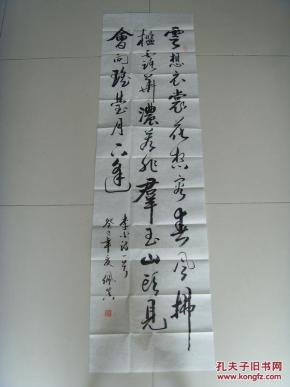 雲想衣裳花想容春風拂
檻露華濃若非群玉山頭見
會向瑤臺月下逢
李白詩一首
癸巳年夏佩
孔夫子旧书网